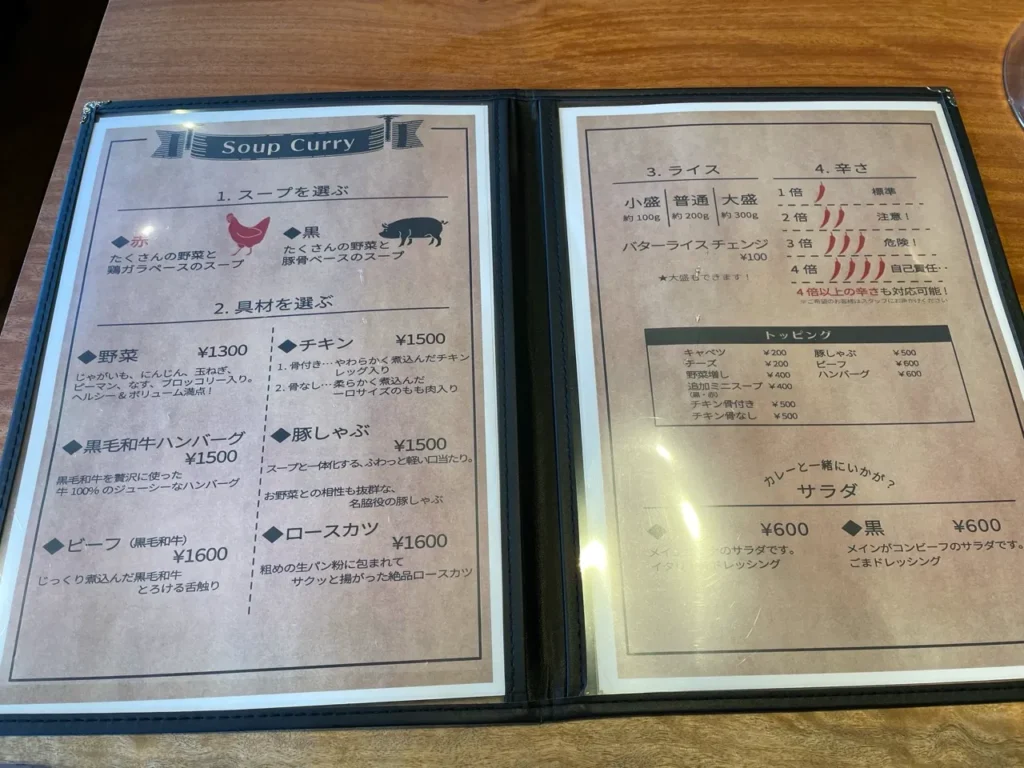 Soup Curry
1. スープを選ぶ
◆赤
たくさんの野菜と
鶏ガラベースのスープ
◆黒
たくさんの野菜と
豚骨ベースのスープ
2. 具材を選ぶ
◆野菜 ¥1300
じゃがいも、にんじん、玉ねぎ、
ピーマン、なす、ブロッコリー入り。
ヘルシー＆ボリューム満点！
◆チキン ¥1500
1. 骨付き…やわらかく煮込んだチキン
レッグ入り
2. 骨なし…柔らかく煮込んだ
一口サイズのもも肉入り
◆黒毛和牛ハンバーグ
¥1500
黒毛和牛を贅沢に使った
牛100%のジューシーなハンバーグ
◆豚しゃぶ
¥1500
スープと一体化する、ふわっと軽い口当たり。
お野菜との相性も抜群な、
名脇役の豚しゃぶ
◆ビーフ（黒毛和牛）
¥1600
じっくり煮込んだ黒毛和牛
とろける舌触り
◆ロースカツ
¥1600
粗めの生パン粉に包まれて
サクッと揚がった絶品ロースカツ
3. ライス
小盛 普通 大盛
約100g 約200g 約300g
バターライス チェンジ
¥100
★大盛もできます！
4. 辛さ
1倍 標準
2倍 注意！
3倍 危険！
4倍 自己責任‥
4倍以上の辛さも対応可能！
※ご希望のお客様はスタッフにお声かけください
トッピング
キャベツ ¥200
チーズ ¥200
野菜増し ¥400
追加ミニスープ ¥400
（黒・赤）
チキン骨付き ¥500
チキン骨なし ¥500
豚しゃぶ ¥500
ビーフ ¥600
ハンバーグ ¥600
カレーと一緒にいかが？
サラダ
◆ ¥600
メイン のサラダです。
ドレッシング
◆黒 ¥600
メインがコンビーフのサラダです。
ごまドレッシング